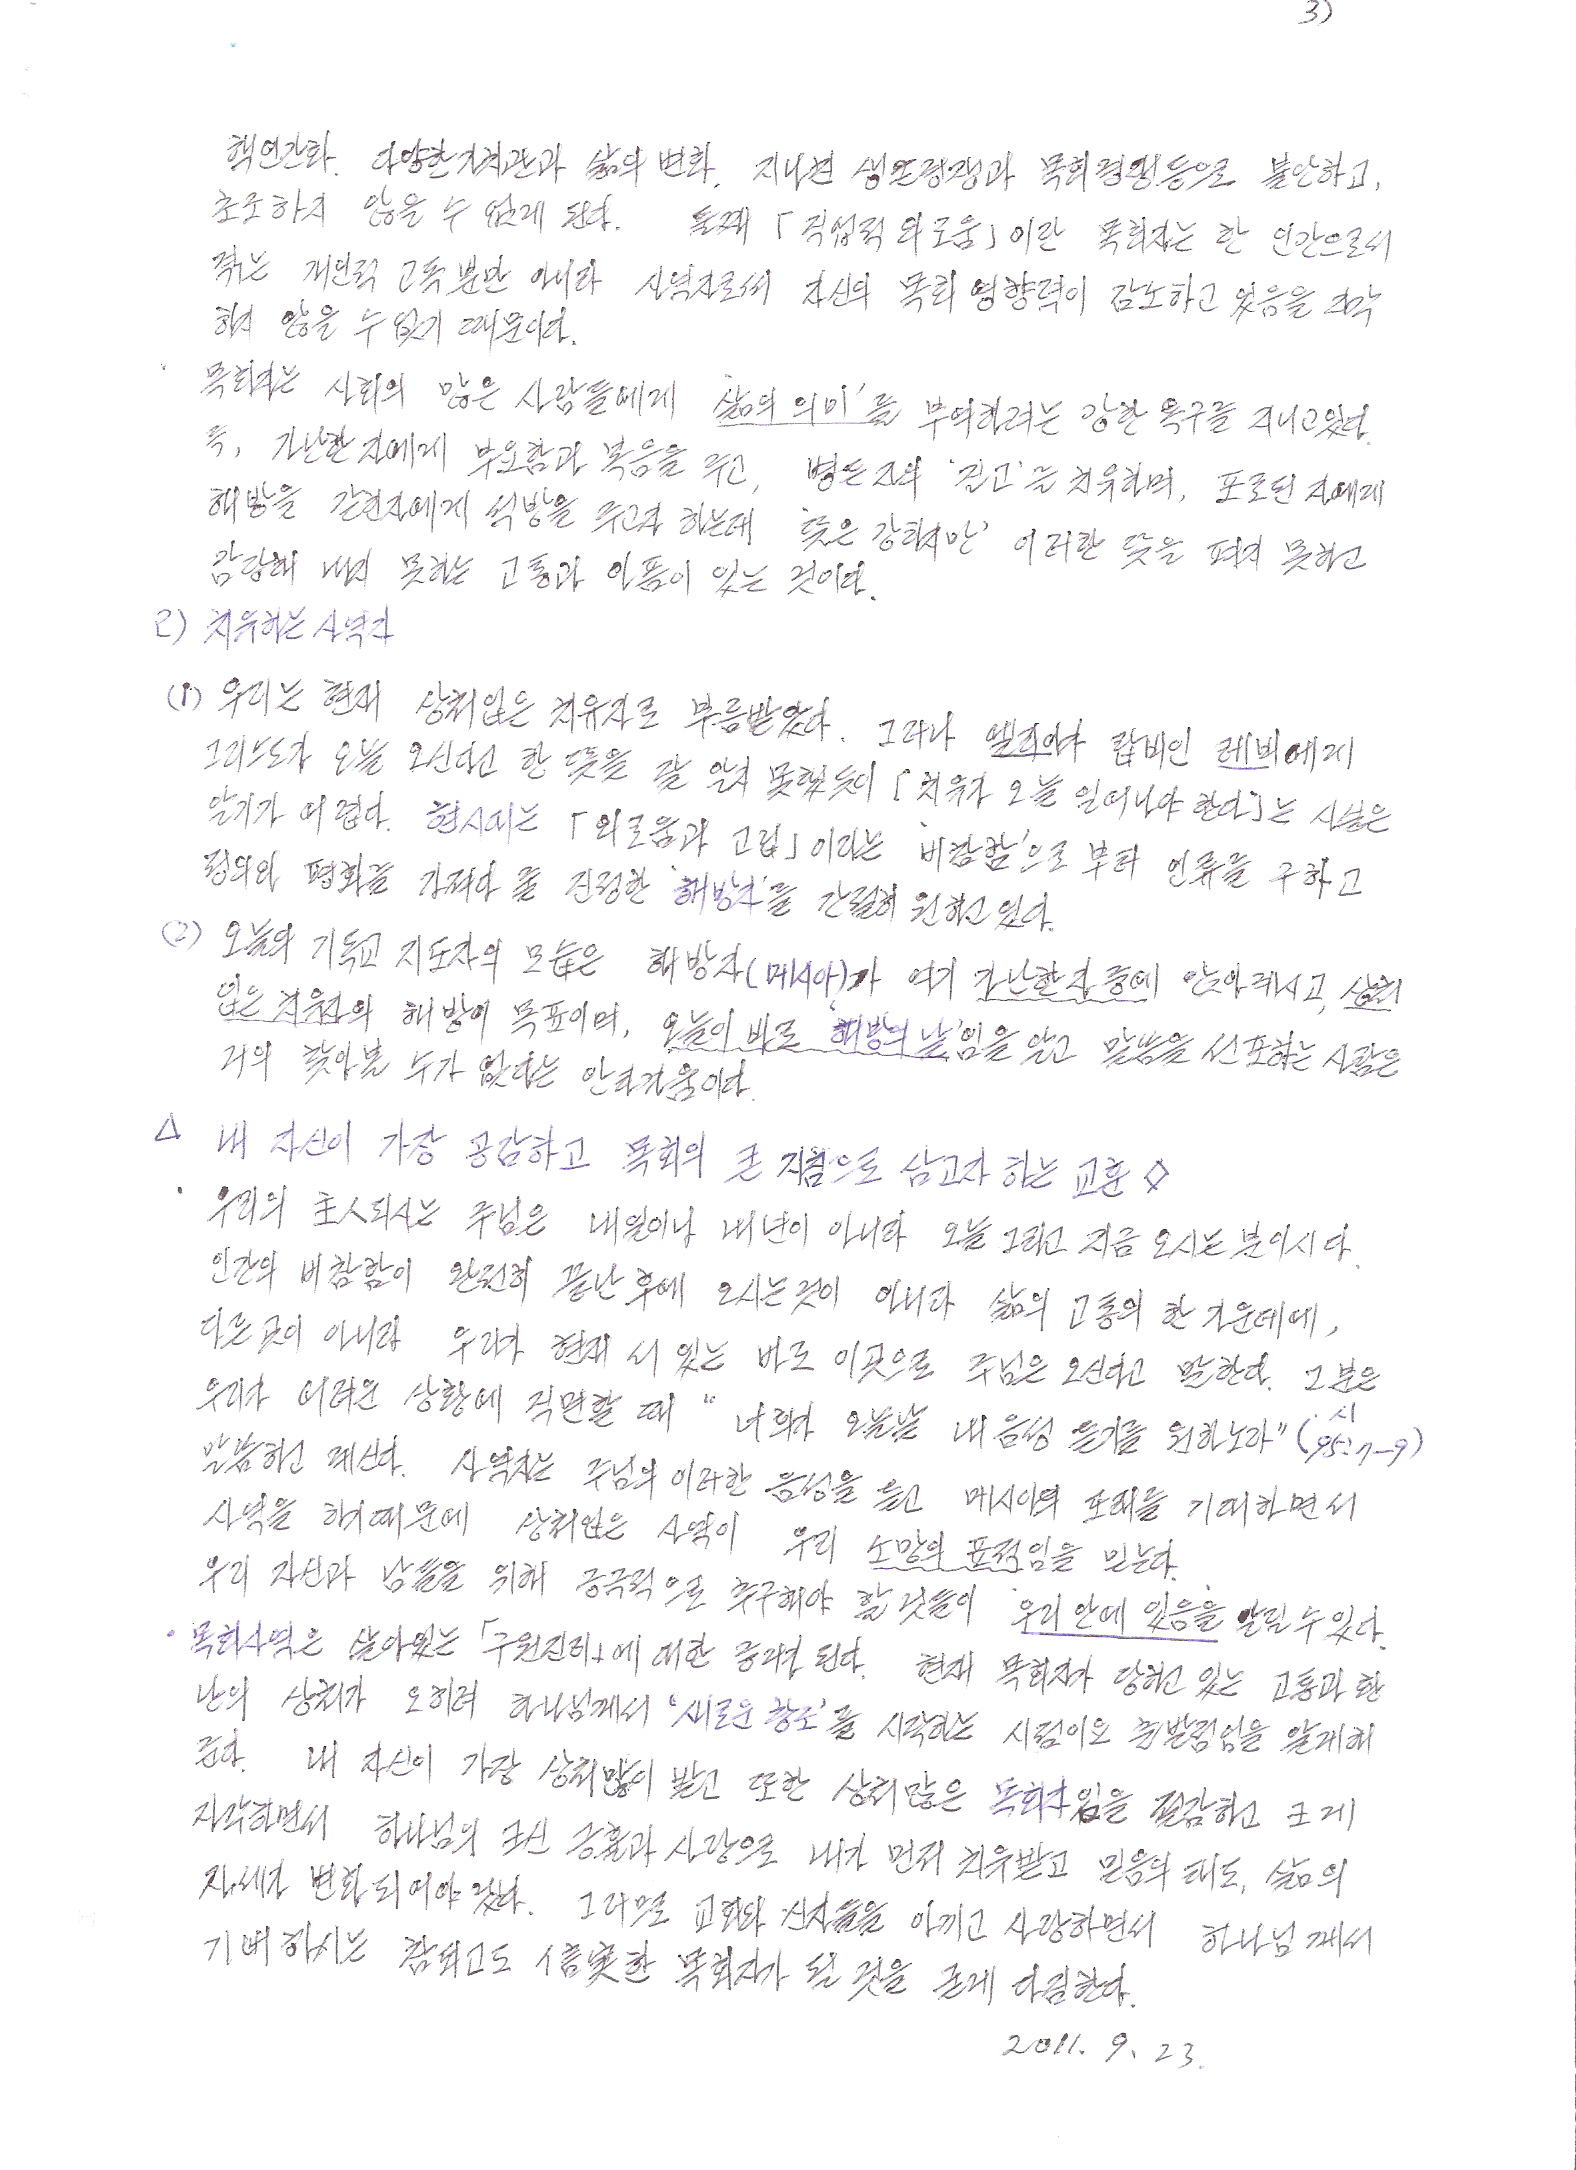 3)
핵인간화. 다양한 가치관과 삶의 변화. 지나친 생존경쟁과 목회경쟁등으로 불안하고,
초조하지 않을 수 없게 된다. 둘째 「직업적 외로움」이란 목회자는 한 인간으로서
겪는 개인적 고독 뿐만 아니라 사역자로써 자신의 목회 영향력이 감소하고 있음을 자각
하지 않을 수 없기 때문이다.
목회자는 사회의 많은 사람들에게 '삶의 의미'를 부여하려는 강한 욕구를 지니고있다.
즉, 가난한 자에게 부요함과 복음을 주고, 병든 자의 '질고'는 치유하며, 포로된 자에게
해방을 갇힌자에게 석방을 주고자 하는데 '뜻은 강하지만' 이러한 뜻을 펴지 못하고
감당해 내지 못하는 고통과 아픔이 있는 것이다.
2) 치유하는 사역자
(1) 우리는 현재 상처입은 치유자로 부름받았다. 그러나 엘리야가 랍비인 레비에게
그리스도가 오늘 오신다고 한 뜻을 잘 알지 못했듯이 「치유가 오늘 일어나야 한다」는 사실은
알기가 어렵다. 현시대는 「외로움과 고립」이라는 '비참함'으로 부터 인류를 구하고
정의와 평화를 가져다 줄 진정한 '해방자'를 간절히 원하고 있다.
(2) 오늘의 기독교 지도자의 모습은 해방자(메시아)가 여기 가난한자 중에 앉아계시고, 상처
입은 치유자의 해방이 목표이며, 오늘이 바로 '해방의 날'임을 알고 말씀을 선포하는 사람은
거의 찾아볼 수가 없다는 안타까움이다.
△ 내 자신이 가장 공감하고 목회의 큰 지침으로 삼고자 하는 교훈 ◊
· 우리의 主人되시는 주님은 내일이나 내년이 아니라 오늘 그리고 지금 오시는 분이시다.
인간의 비참함이 완전히 끝난 후에 오시는것이 아니라 삶의 고통의 한 가운데에,
다른곳이 아니라 우리가 현재 서 있는 바로 이곳으로 주님은 오신다고 말한다. 그 분은
우리가 어려운 상황에 직면할 때 "너희가 오늘날 내 음성 듣기를 원하노라" (시 95:7-9)
말씀하고 계신다. 사역자는 주님의 이러한 음성을 듣고 메시아의 도래를 기대하면서
사역을 하기때문에 상처입은 사역이 우리 소망의 표적임을 믿는다.
우리 자신과 남들을 위해 궁극적으로 추구해야 할 것들이 '우리 안에 있음을' 알릴 수 있다.
· 목회사역은 살아있는 「구원진리」에 대한 증거가 된다. 현재 목회자가 당하고 있는 고통과 환
난의 상처가 오히려 하나님께서 '새로운 창조'를 시작하는 시점이요 출발점임을 알게해
준다. 내 자신이 가장 상처많이 받고 또한 상처많은 목회자임을 절감하고 크게
자각하면서 하나님의 크신 긍휼과 사랑으로 내가 먼저 치유받고 믿음의 태도, 삶의
자세가 변화되어야 겠다. 그러므로 교회와 신자들을 아끼고 사랑하면서 하나님께서
기뻐하시는 참되고도 信實한 목회자가 될 것을 굳게 다짐한다.
2011. 9. 23.